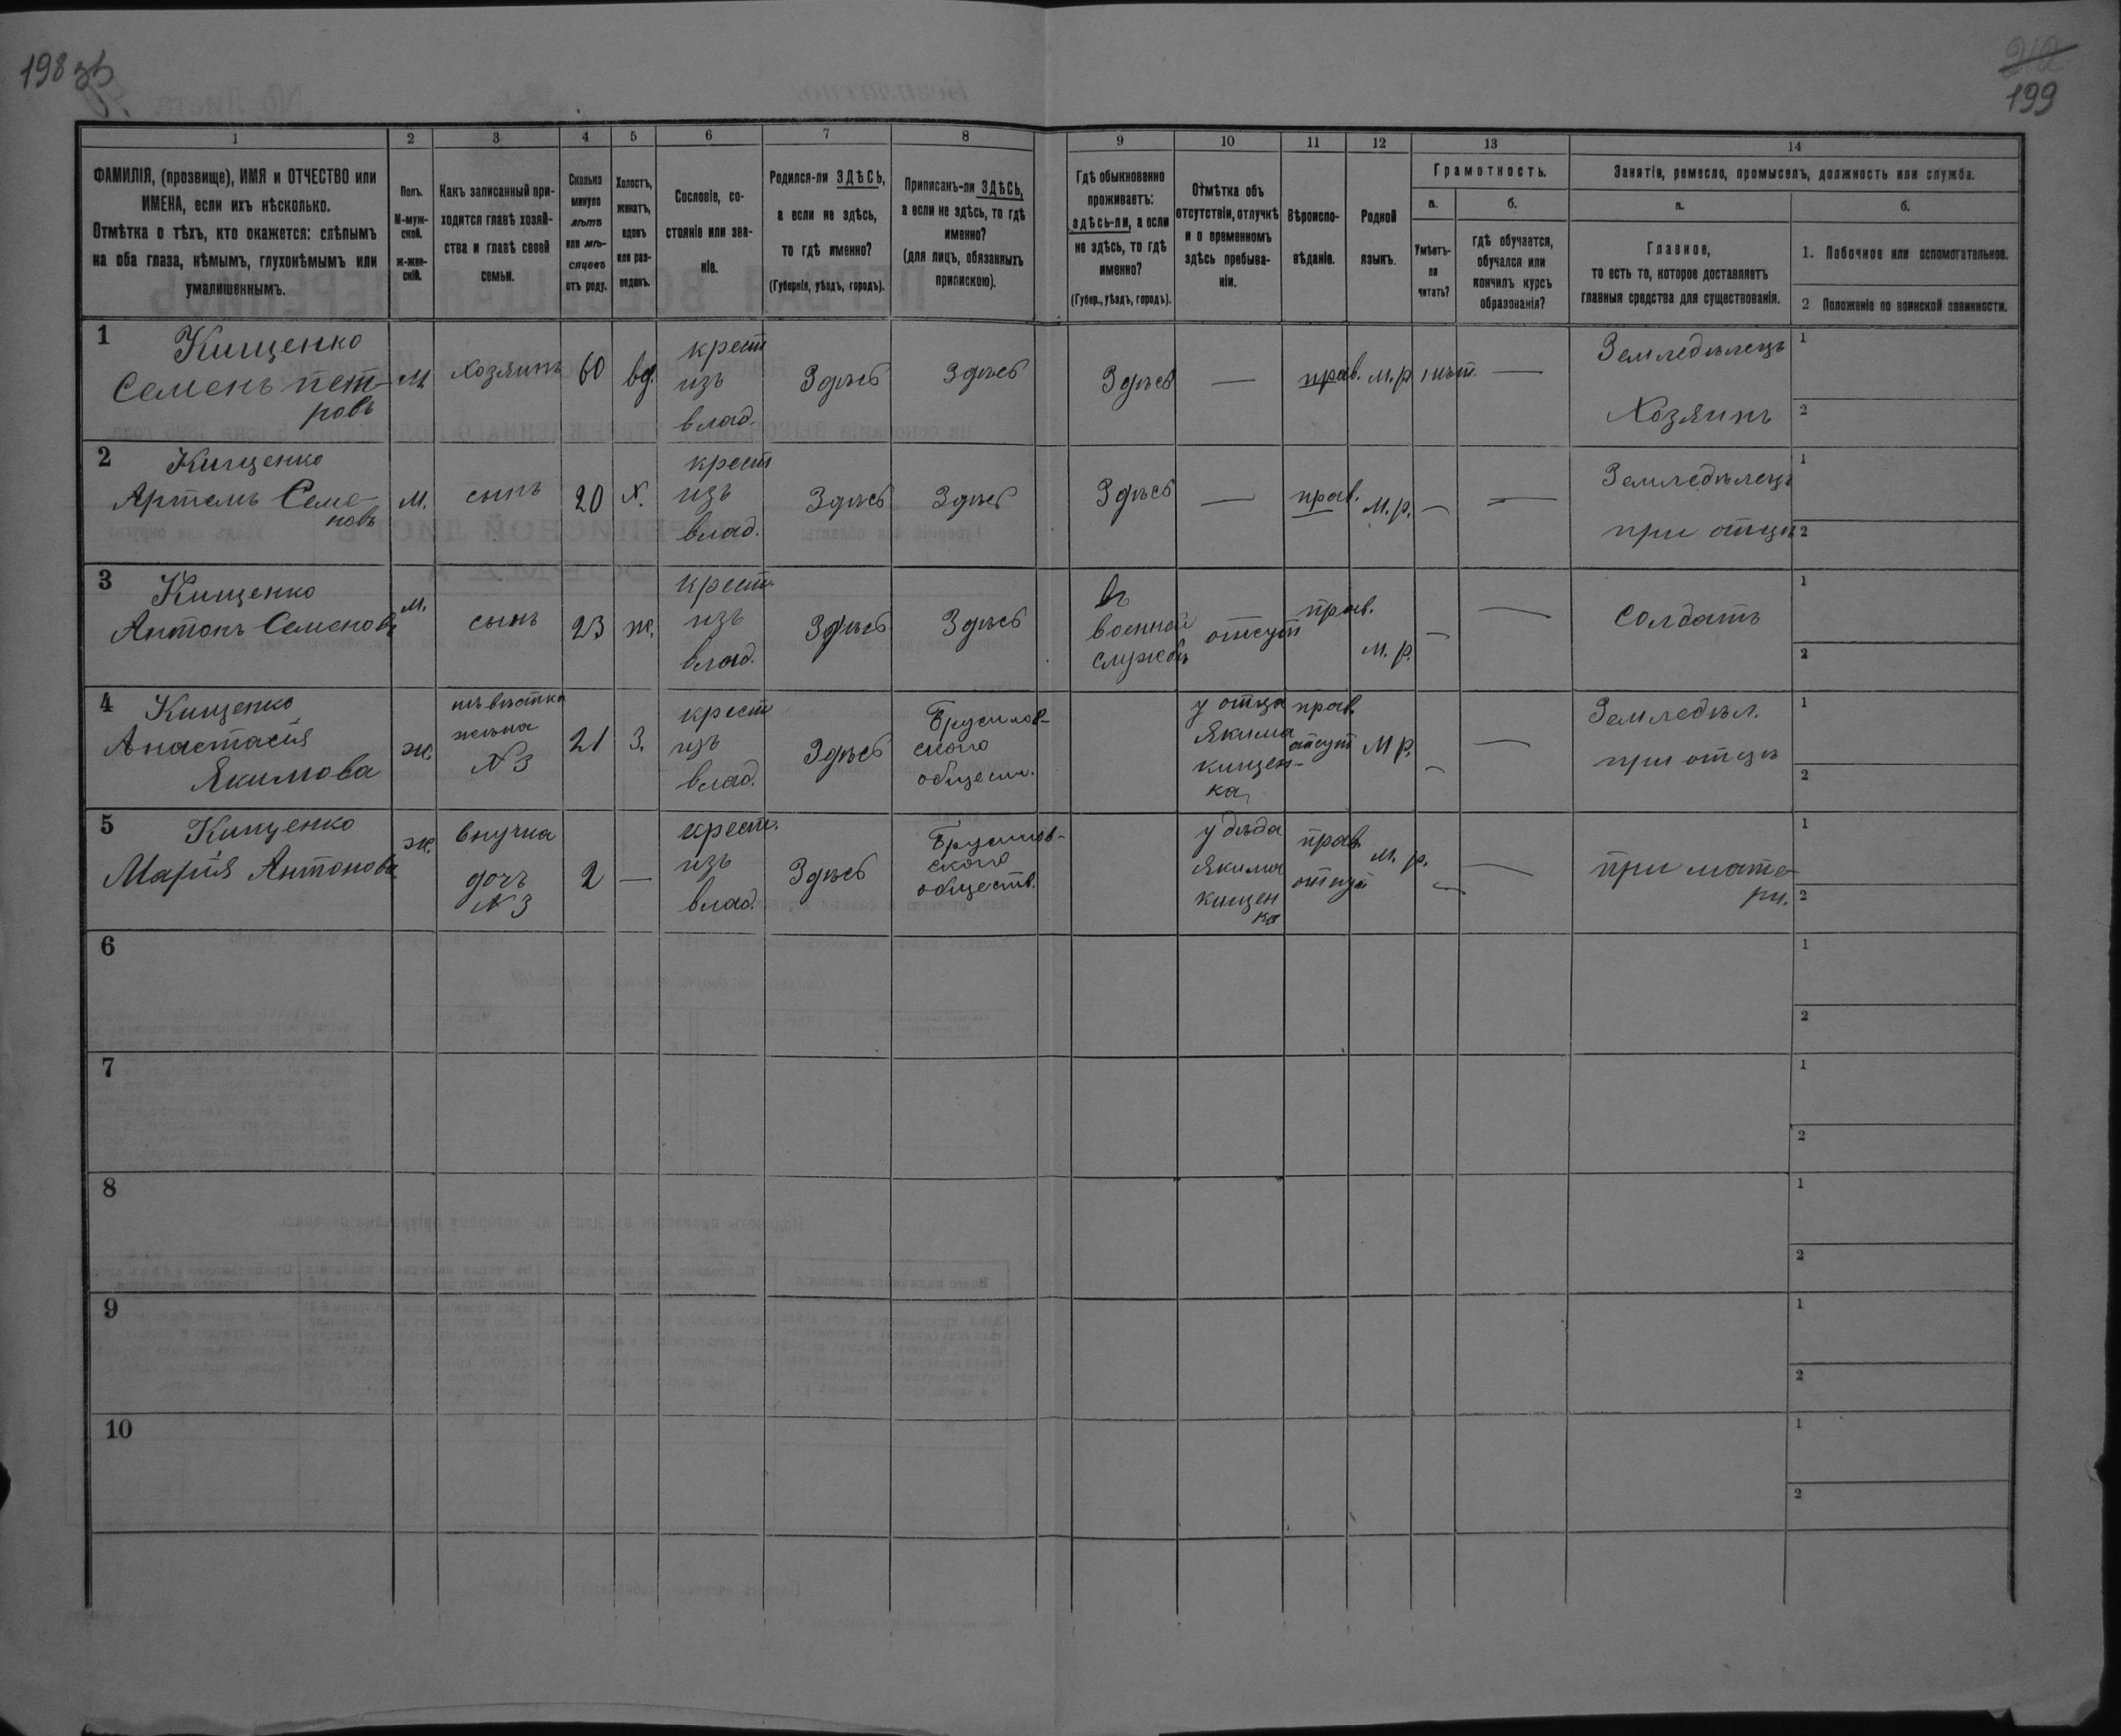 198 зв
212
199
1
2
3
4
5
6
7
8
9
10
11
12
13
14
ФАМИЛІЯ, (прозвище), ИМЯ и ОТЧЕСТВО или
ИМЕНА, если ихъ нѣсколько.
Отмѣтка о тѣхъ, кто окажется: слѣпымъ
на оба глаза, нѣмымъ, глухонѣмымъ или
умалишеннымъ.
Полъ.
М-муж-
ской.
ж-жен-
скій.
Какъ записанный при-
ходится главѣ хозяй-
ства и главѣ своей
семьи.
Сколько
минуло
лѣтъ
или мѣ-
сяцевъ
отъ роду.
Холостъ,
женатъ,
вдовъ
или раз-
веденъ.
Сословіе, со-
стояніе или зва-
ніе.
Родился-ли ЗДѢСЬ,
а если не здѣсь,
то гдѣ именно?
(Губернія, уѣздъ, городъ).
Приписанъ-ли ЗДѢСЬ,
а если не здѣсь, то гдѣ
именно?
(для лицъ, обязанныхъ
припискою).
Гдѣ обыкновенно
проживаетъ:
здѣсь-ли, а если
не здѣсь, то гдѣ
именно?
(Губер., уѣздъ, городъ).
Отмѣтка объ
отсутствіи, отлучкѣ
и о временномъ
здѣсь пребыва-
ніи.
Вѣроиспо-
вѣданіе.
Родной
языкъ.
Грамотность.
а.
Умѣетъ-
ли
читать?
б.
гдѣ обучается,
обучался или
кончилъ курсъ
образованія?
Занятіе, ремесло, промыселъ, должность или служба.
а.
Главное,
то есть то, которое доставляетъ
главныя средства для существованія.
б.
1. Побочное или вспомогательное.
2 Положеніе по воинской повинности.
1 Кищенко
Семенъ пет-
ровъ
м
хозяинъ
60
вд.
крест
изъ
влад.
Здѣсь
Здѣсь
Здѣсь
—
прав.
м.р
нѣт.
—
Земледѣлецъ
Хозяинъ
1
2
2 Кищенко
Артемъ Семе-
новъ
м.
сынъ
20
х.
крест
изъ
влад.
Здѣсь
Здѣсь
Здѣсь
—
прав.
м.р.
—
—
Земледѣлецъ
при отцѣ
1
2
3 Кищенко
Антонъ Семеновъ
м.
сынъ
23
ж.
крест.
изъ
влад.
Здѣсь
Здѣсь
въ
военной
службѣ
отсут
прав.
м.р.
—
—
Солдатъ
1
2
4 Кищенко
Анастасія
Якимова
ж.
невѣстка
жена
№ 3
21
З.
крест
изъ
влад.
Здѣсь
Брусилов-
ского
обществ.
у отца
Якима
кищен-
ка
прав.
отсут
М р.
—
—
Земледѣл.
при отцѣ
1
2
5 Кищенко
Марія Антонова
ж.
внучка
дочь
№ 3
2
—
крест.
изъ
влад.
Здѣсь
Брусилов-
ского
обществ.
у дѣда
Якима
кищен
ка
прав
отсут
м. р.
—
—
при мате-
ри.
1
2
6
1
2
7
1
2
8
1
2
9
1
2
10
1
2